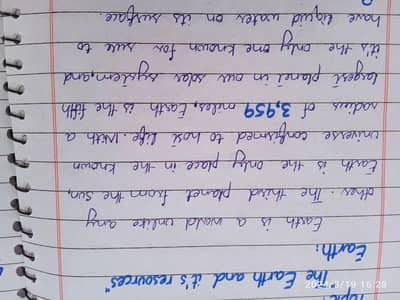 Topic:
"The Earth and it's resources"
Earth:
Earth is a world unlike any
other. The third planet from the sun,
Earth is the only place in the known
universe confirmed to host life. With a
radius of 3,959 miles, Earth is the fifth
largest planet in our solar system, and
it's the only one known for sure to
have liquid water on its surface.